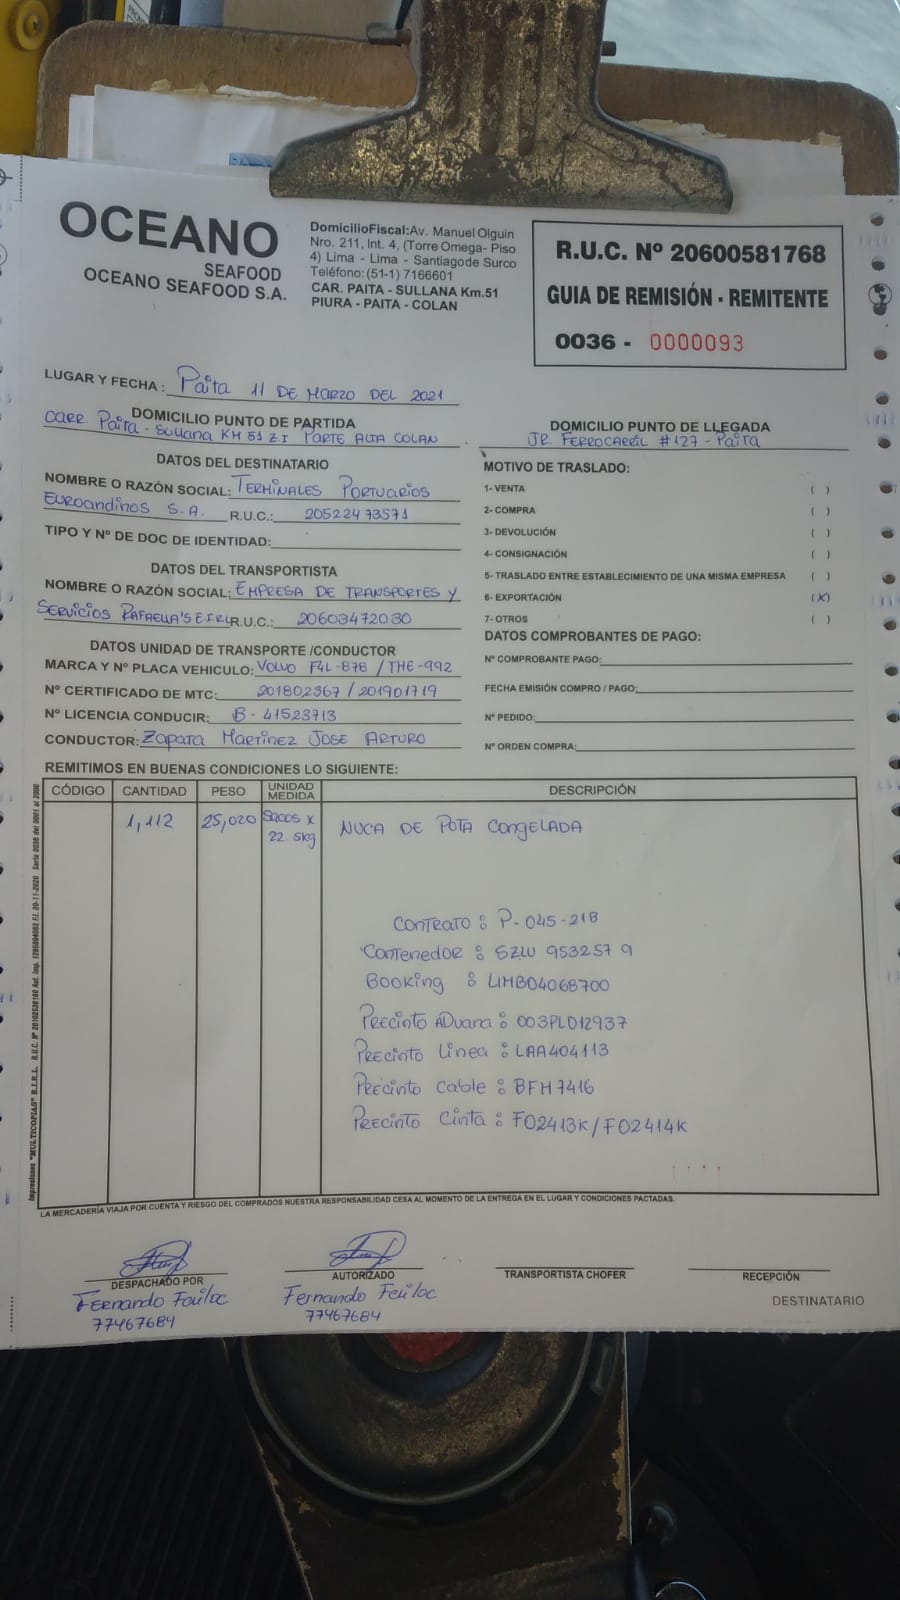 OCEANO
SEAFOOD
OCEANO SEAFOOD S.A.
DomicilioFiscal:Av. Manuel Olguin
Nro. 211, Int. 4, (Torre Omega- Piso
4) Lima - Lima - Santiagode Surco
Teléfono:(51-1) 7166601
CAR. PAITA - SULLANA Km.51
PIURA - PAITA - COLAN
R.U.C. Nº 20600581768
GUIA DE REMISIÓN - REMITENTE
0036 - 0000093
LUGAR Y FECHA : Paita 11 DE MARZO DEL 2021
DOMICILIO PUNTO DE PARTIDA
CARR. Paita - Sullana KM 51 Z I PARTE ALTA COLAN
DOMICILIO PUNTO DE LLEGADA
JR. FERROCARRIL #127 - Paita
DATOS DEL DESTINATARIO
NOMBRE O RAZÓN SOCIAL: TERMINALES PORTUARIOS
EUROANDINOS S.A. R.U.C.: 20522473571
TIPO Y Nº DE DOC DE IDENTIDAD:
DATOS DEL TRANSPORTISTA
NOMBRE O RAZÓN SOCIAL: EMPRESA DE TRANSPORTES Y
SERVICIOS RAFAELLA'S E.I.R.L R.U.C.: 20603472030
DATOS UNIDAD DE TRANSPORTE /CONDUCTOR
MARCA Y Nº PLACA VEHICULO: VOLVO F4L-878 / THE-992
Nº CERTIFICADO DE MTC: 201802367 / 201901719
Nº LICENCIA CONDUCIR: B - 41523713
CONDUCTOR: Zapata Martinez Jose Arturo
MOTIVO DE TRASLADO:
1- VENTA ( )
2- COMPRA ( )
3- DEVOLUCIÓN ( )
4- CONSIGNACIÓN ( )
5- TRASLADO ENTRE ESTABLECIMIENTO DE UNA MISMA EMPRESA ( )
6- EXPORTACIÓN (X)
7- OTROS ( )
DATOS COMPROBANTES DE PAGO:
Nº COMPROBANTE PAGO:
FECHA EMISIÓN COMPRO / PAGO:
Nº PEDIDO:
Nº ORDEN COMPRA:
REMITIMOS EN BUENAS CONDICIONES LO SIGUIENTE:
CÓDIGO CANTIDAD PESO UNIDAD MEDIDA DESCRIPCIÓN
1,112 25,020 SACOS x 22.5kg NUCA DE POTA CONGELADA
CONTRATO : P-045-21B
Contenedor : SZLU 953257 9
Booking : LIMB04068700
PRECINTO ADUANA : 003PLD12937
PRECINTO Linea : LAA404113
PRECINTO Cable : BFM7416
PRECINTO Cinta : F02413K/F02414K
LA MERCADERÍA VIAJA POR CUENTA Y RIESGO DEL COMPRADOS NUESTRA RESPONSABILIDAD CESA AL MOMENTO DE LA ENTREGA EN EL LUGAR Y CONDICIONES PACTADAS.
DESPACHADO POR
FERNANDO
77467684
AUTORIZADO
FERNANDO
77467684
TRANSPORTISTA CHOFER
RECEPCIÓN
DESTINATARIO